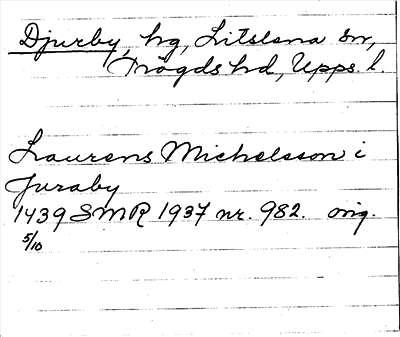 Djurby, hg, Litslena sn,
Trögds hd, Upps. l.
Laurens Michelsson i
Juraby
1439 SMR 1937 nr. 982. orig.
5/10